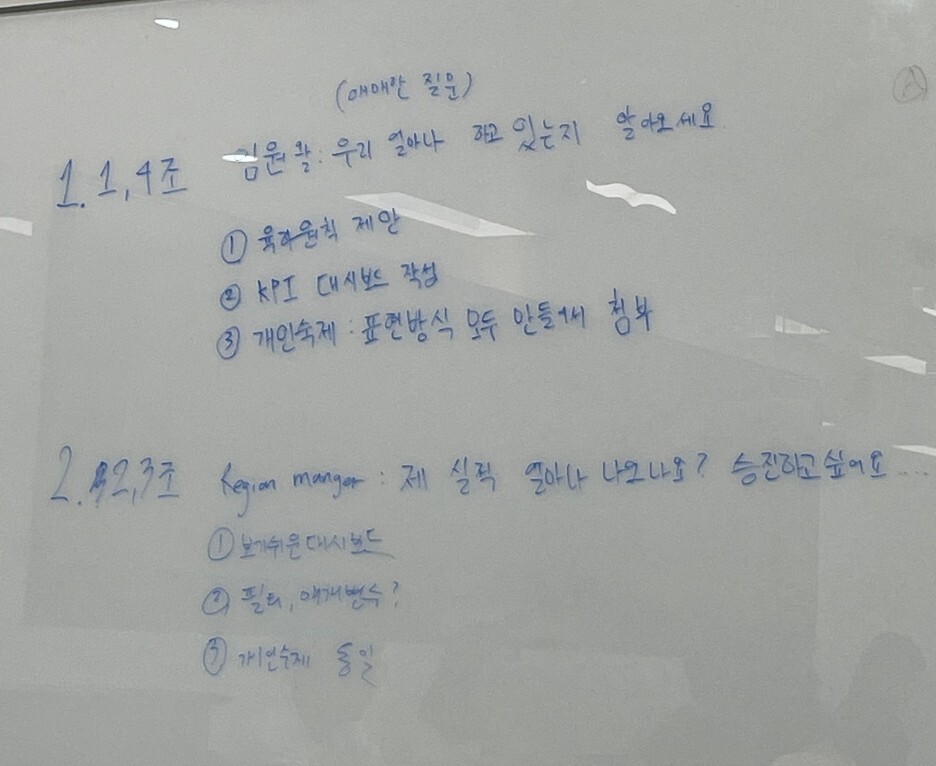 (애매한 질문)
1. 1,4조 임원 왈: 우리 얼마나 하고 있는지 알아오세요
① 육하원칙 제안
② KPI 대시보드 작성
③ 개인숙제 : 표현방식 모두 만들어서 첨부
2. 2,3조 Region manger : 제 실적 얼마나 나오나요? 승진하고싶어요....
① 보기쉬운대시보드
② 필터, 매개변수?
③ 개인숙제 동일